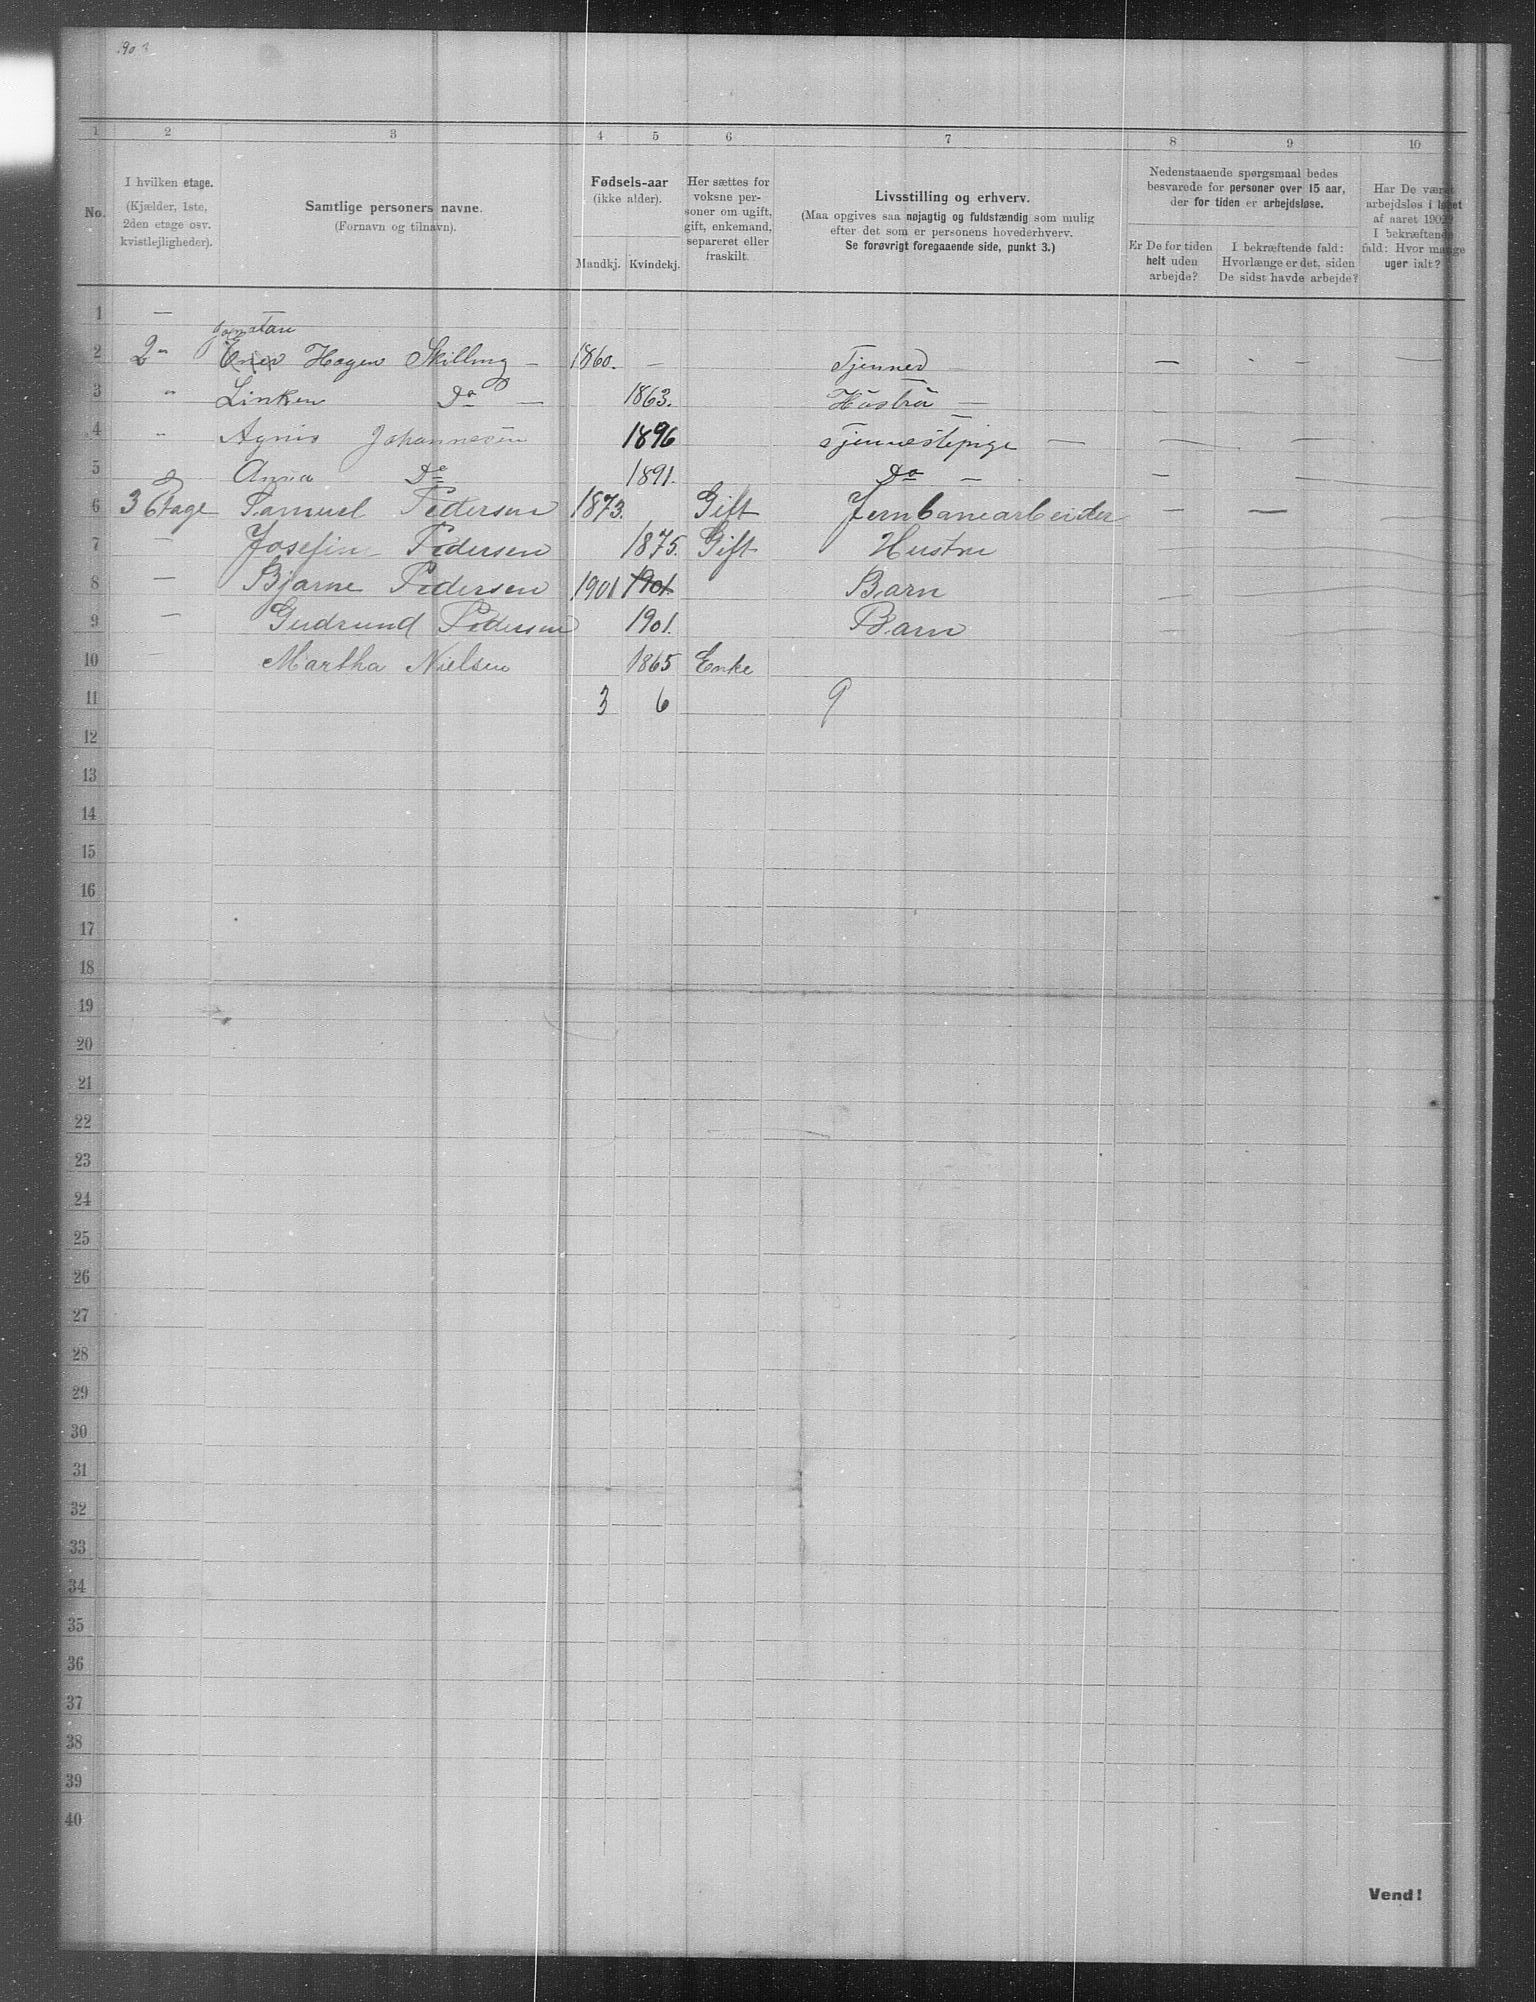 1 2 3 4 5 6 7 8 9 10
No.
I hvilken etage.
(Kjælder, 1ste,
2den etage osv.
kvistlejligheder).
Samtlige personers navne.
(Fornavn og tilnavn).
Fødsels-aar
(ikke alder).
Mandkj. Kvindekj.
Her sættes for
voksne per-
soner om ugift,
gift, enkemand,
separeret eller
fraskilt.
Livsstilling og erhverv.
(Maa opgives saa nøjagtig og fuldstændig som mulig
efter det som er personens hovederhverv.
Se forøvrigt foregaaende side, punkt 3.)
Nedenstaaende spørgsmaal bedes
besvarede for personer over 15 aar,
der for tiden er arbejdsløse.
Er De for tiden
helt uden
arbejde?
I bekræftende fald:
Hvorlænge er det, siden
De sidst havde arbejde?
Har De været
arbejdsløs i løbet
af aaret 1902?
I bekræftende
fald: Hvor mange
uger ialt?
1 — —
2 2 " Hagen Skilling — 1860. — Tjener — — — 
3 " Linken Do — 1863. Hustru —
4 " Agnis Johannesen 1896 Tjennestepige — — —
5 Anna Do 1891. Do — —
6 3 Etage Samuel Pedersen 1873. Gift Jernbanearbeider — —
7 — Josefin Pedersen 1875. Gift Hustru
8 — Bjarne Pedersen 1901 1901. Barn
9 — Gudrund Pedersen 1901. Barn
10 Martha Nielsen 1865 Enke
11 3 6 9
12
13
14
15
16
17
18
19
20
21
22
23
24
25
26
27
28
29
30
31
32
33
34
35
36
37
38
39
40
Vend!